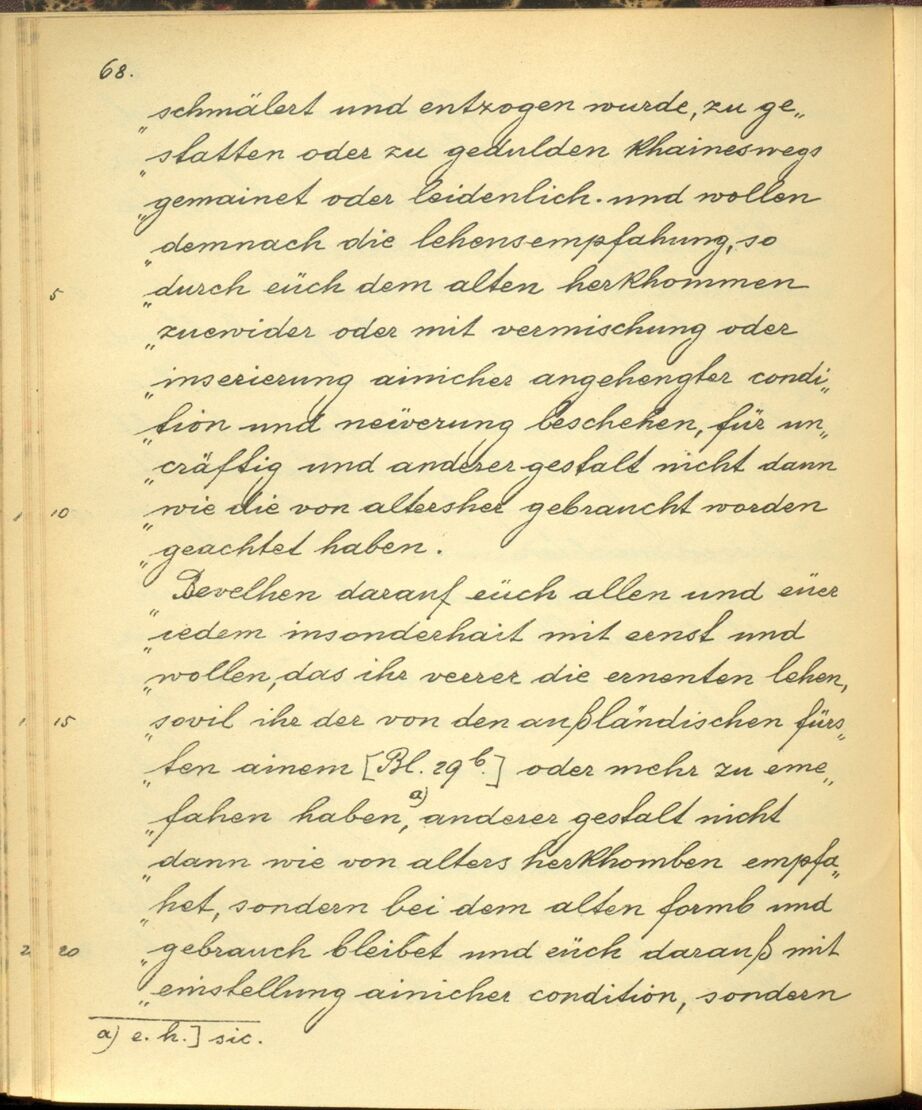 68.
„schmälert und entzogen wurde, zu ge„
„statten oder zu gedulden khaineswegs
„gemainet oder leidenlich. und wollen
„demnach die lehensempfahung, so
5 „durch eüch dem alten herkhommen
„zuewider oder mit vermischung oder
„inserierung ainicher angehengter condi„
„tion und neüerung beschehen, für un„
„cräftig und anderer gestalt nicht dann
10 „wie die von altersher gebraucht worden
„geachtet haben.
„Bevelhen darauf eüch allen und eüer
„iedem insonderhait mit ernst und
„wollen, das ihr verrer die ernenten lehen,
15 „sovil ihr der von den außländischen fürs„
„ten ainem [Bl. 29b.] oder mehr zu eme„
„fahen haben,a) anderer gestalt nicht
„dann wie von alters herkhomben empfa„
„het, sondern bei dem alten formb und
20 „gebrauch bleibet und eüch darauß mit
„einstellung ainicher condition, sondern
a) e. h.] sic.